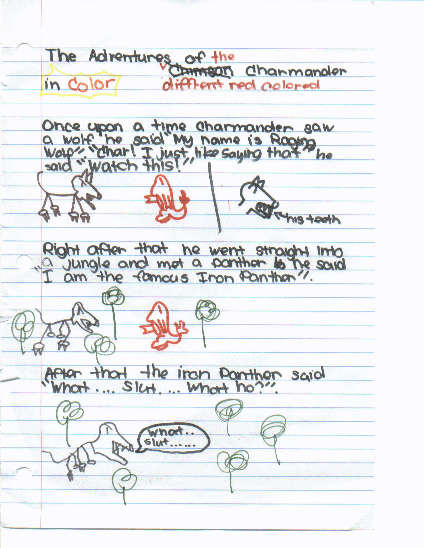 The Adventures of the
Crimson Charmander
in Color diffrent red colored
Once upon a time Charmander saw
a wolf he said "My name is Raging
Wolf" "Char! I just like saying that" he
said "Watch this!"
his teeth
Right after that he went straight into
a jungle and met a panther he said
"I am the famous Iron Panther".
After that the iron Panther said
"What.... Slut.... What ho?".
What..
slut......